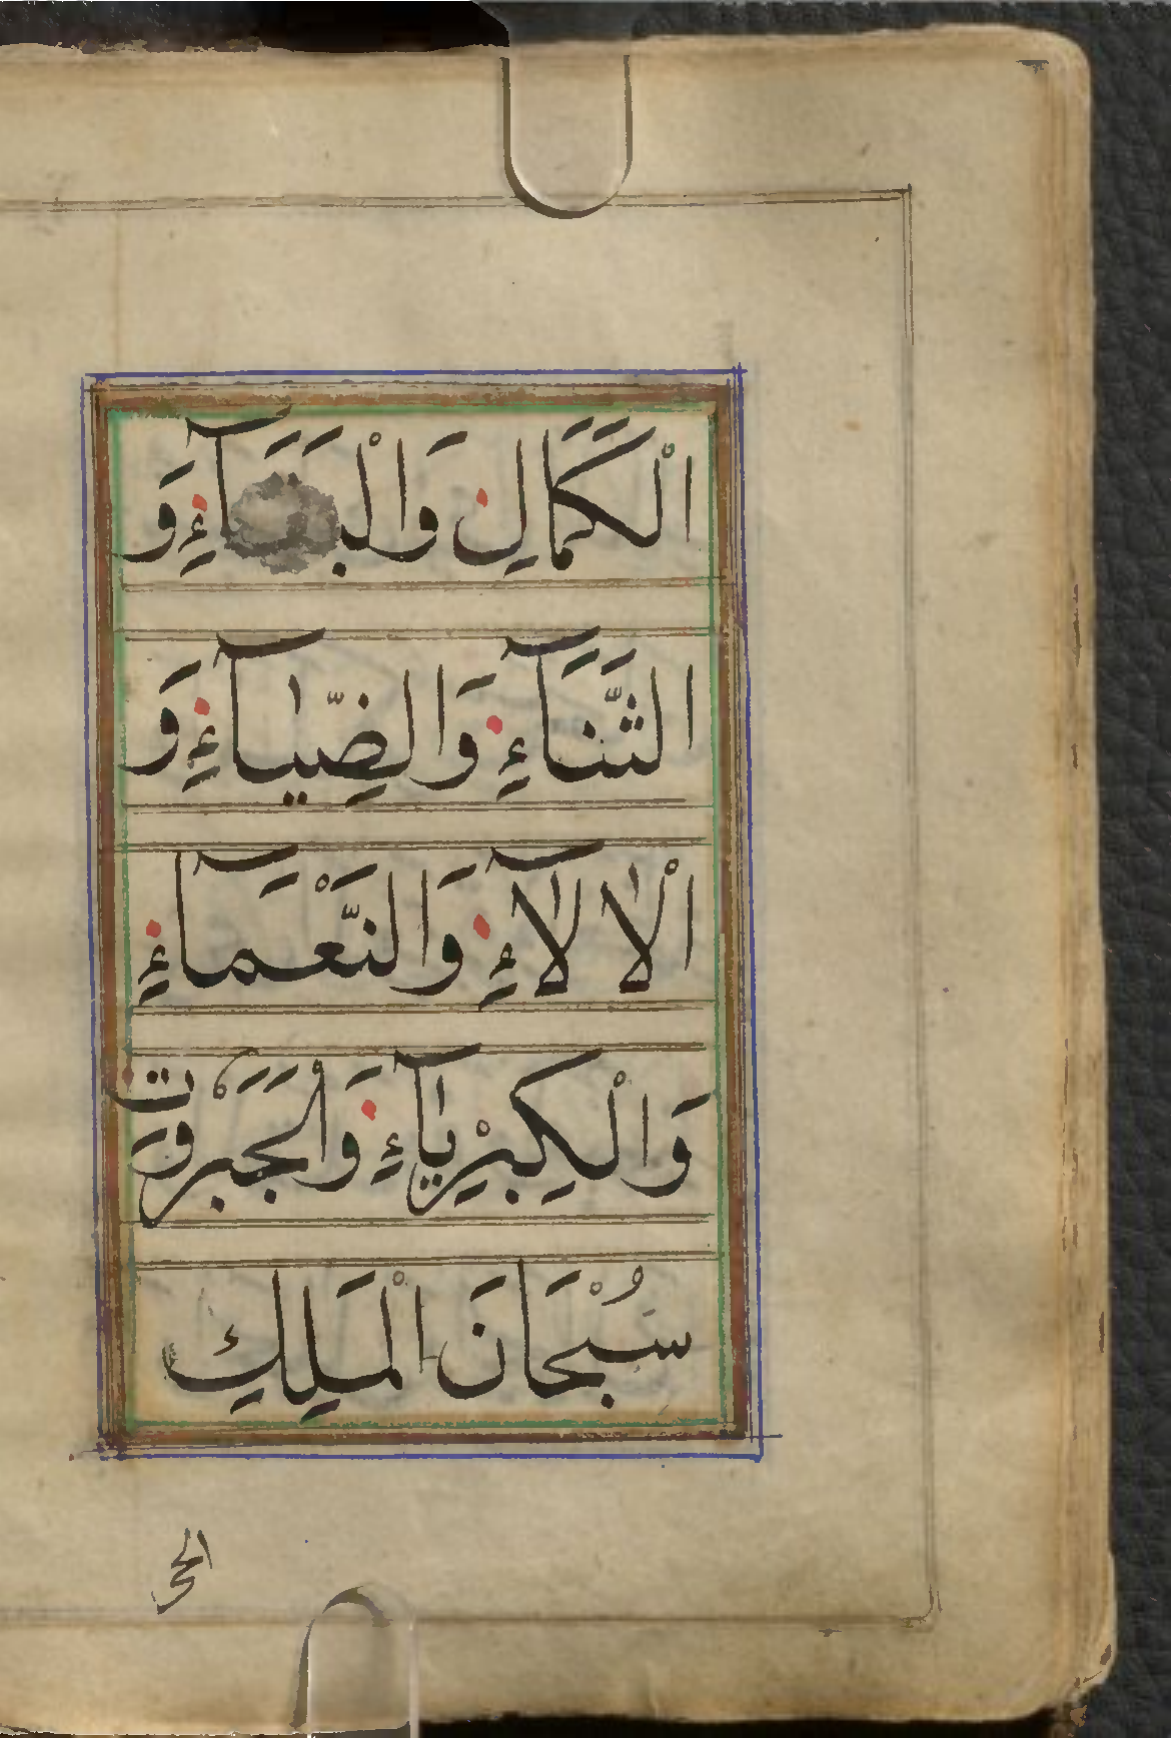 الْكَمَالِ وَ
الثَّنَآءِ وَالضِّيَآءِ وَ
الْاٰلَآءِ وَالنَّعْمَآءِ
وَالْكِبْرِيَآءِ وَالْجَبَرُوتِ
سُبْحَانَ الْمَلِكِ
الحی